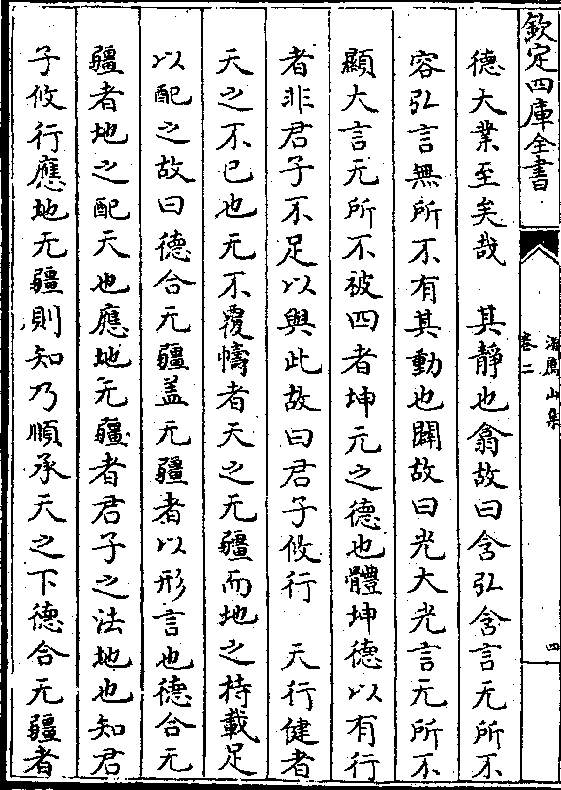 欽定四庫全書
卷二
四
德大業至矣哉　其靜也翕故曰含弘含言无所不
容弘言無所不有其動也闢故曰光大光言无所不
顯大言元所不被四者坤元之德也體坤德以有行
者非君子不足以與此故曰君子攸行　天行健者
天之不已也无不覆幬者天之无疆而地之持載足
以配之故曰德合无疆盖无疆者以形言也德合无
疆者地之配天也應地无疆者君子之法地也知君
子攸行應地无疆則知乃順承天之下德合无疆者